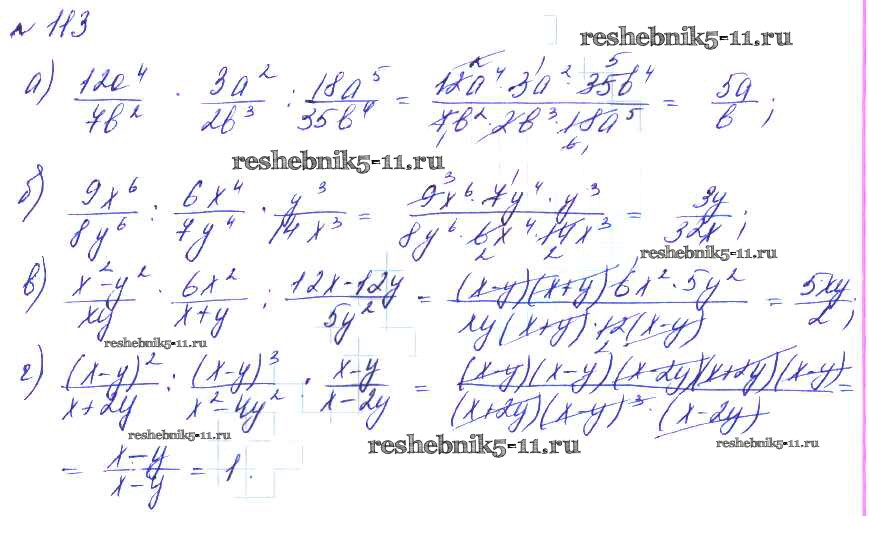 № 113
reshebnik5-11.ru
а) 12a⁴/7b² · 3a²/2b³ : 18a⁵/35b⁴ = 12a⁴ · 3a² · 35b⁴ / 7b² · 2b³ · 18a⁵ = 5a/b ;
reshebnik5-11.ru
б) 9x⁶/8y⁶ : 6x⁴/7y⁴ · y³/14x³ = 9x⁶ · 7y⁴ · y³ / 8y⁶ · 6x⁴ · 14x³ = 3y/32x ;
reshebnik5-11.ru
в) x²-y²/xy · 6x²/x+y : 12x-12y/5y² = (x-y)(x+y) 6x² · 5y² / xy(x+y) · 12(x-y) = 5xy/2 ;
reshebnik5-11.ru
г) (x-y)²/x+2y : (x-y)³/x²-4y² · x-y/x-2y = (x-y)(x-y)(x-2y)(x+2y)(x-y) / (x+2y)(x-y)³ · (x-2y) =
reshebnik5-11.ru reshebnik5-11.ru reshebnik5-11.ru
= x-y/x-y = 1.